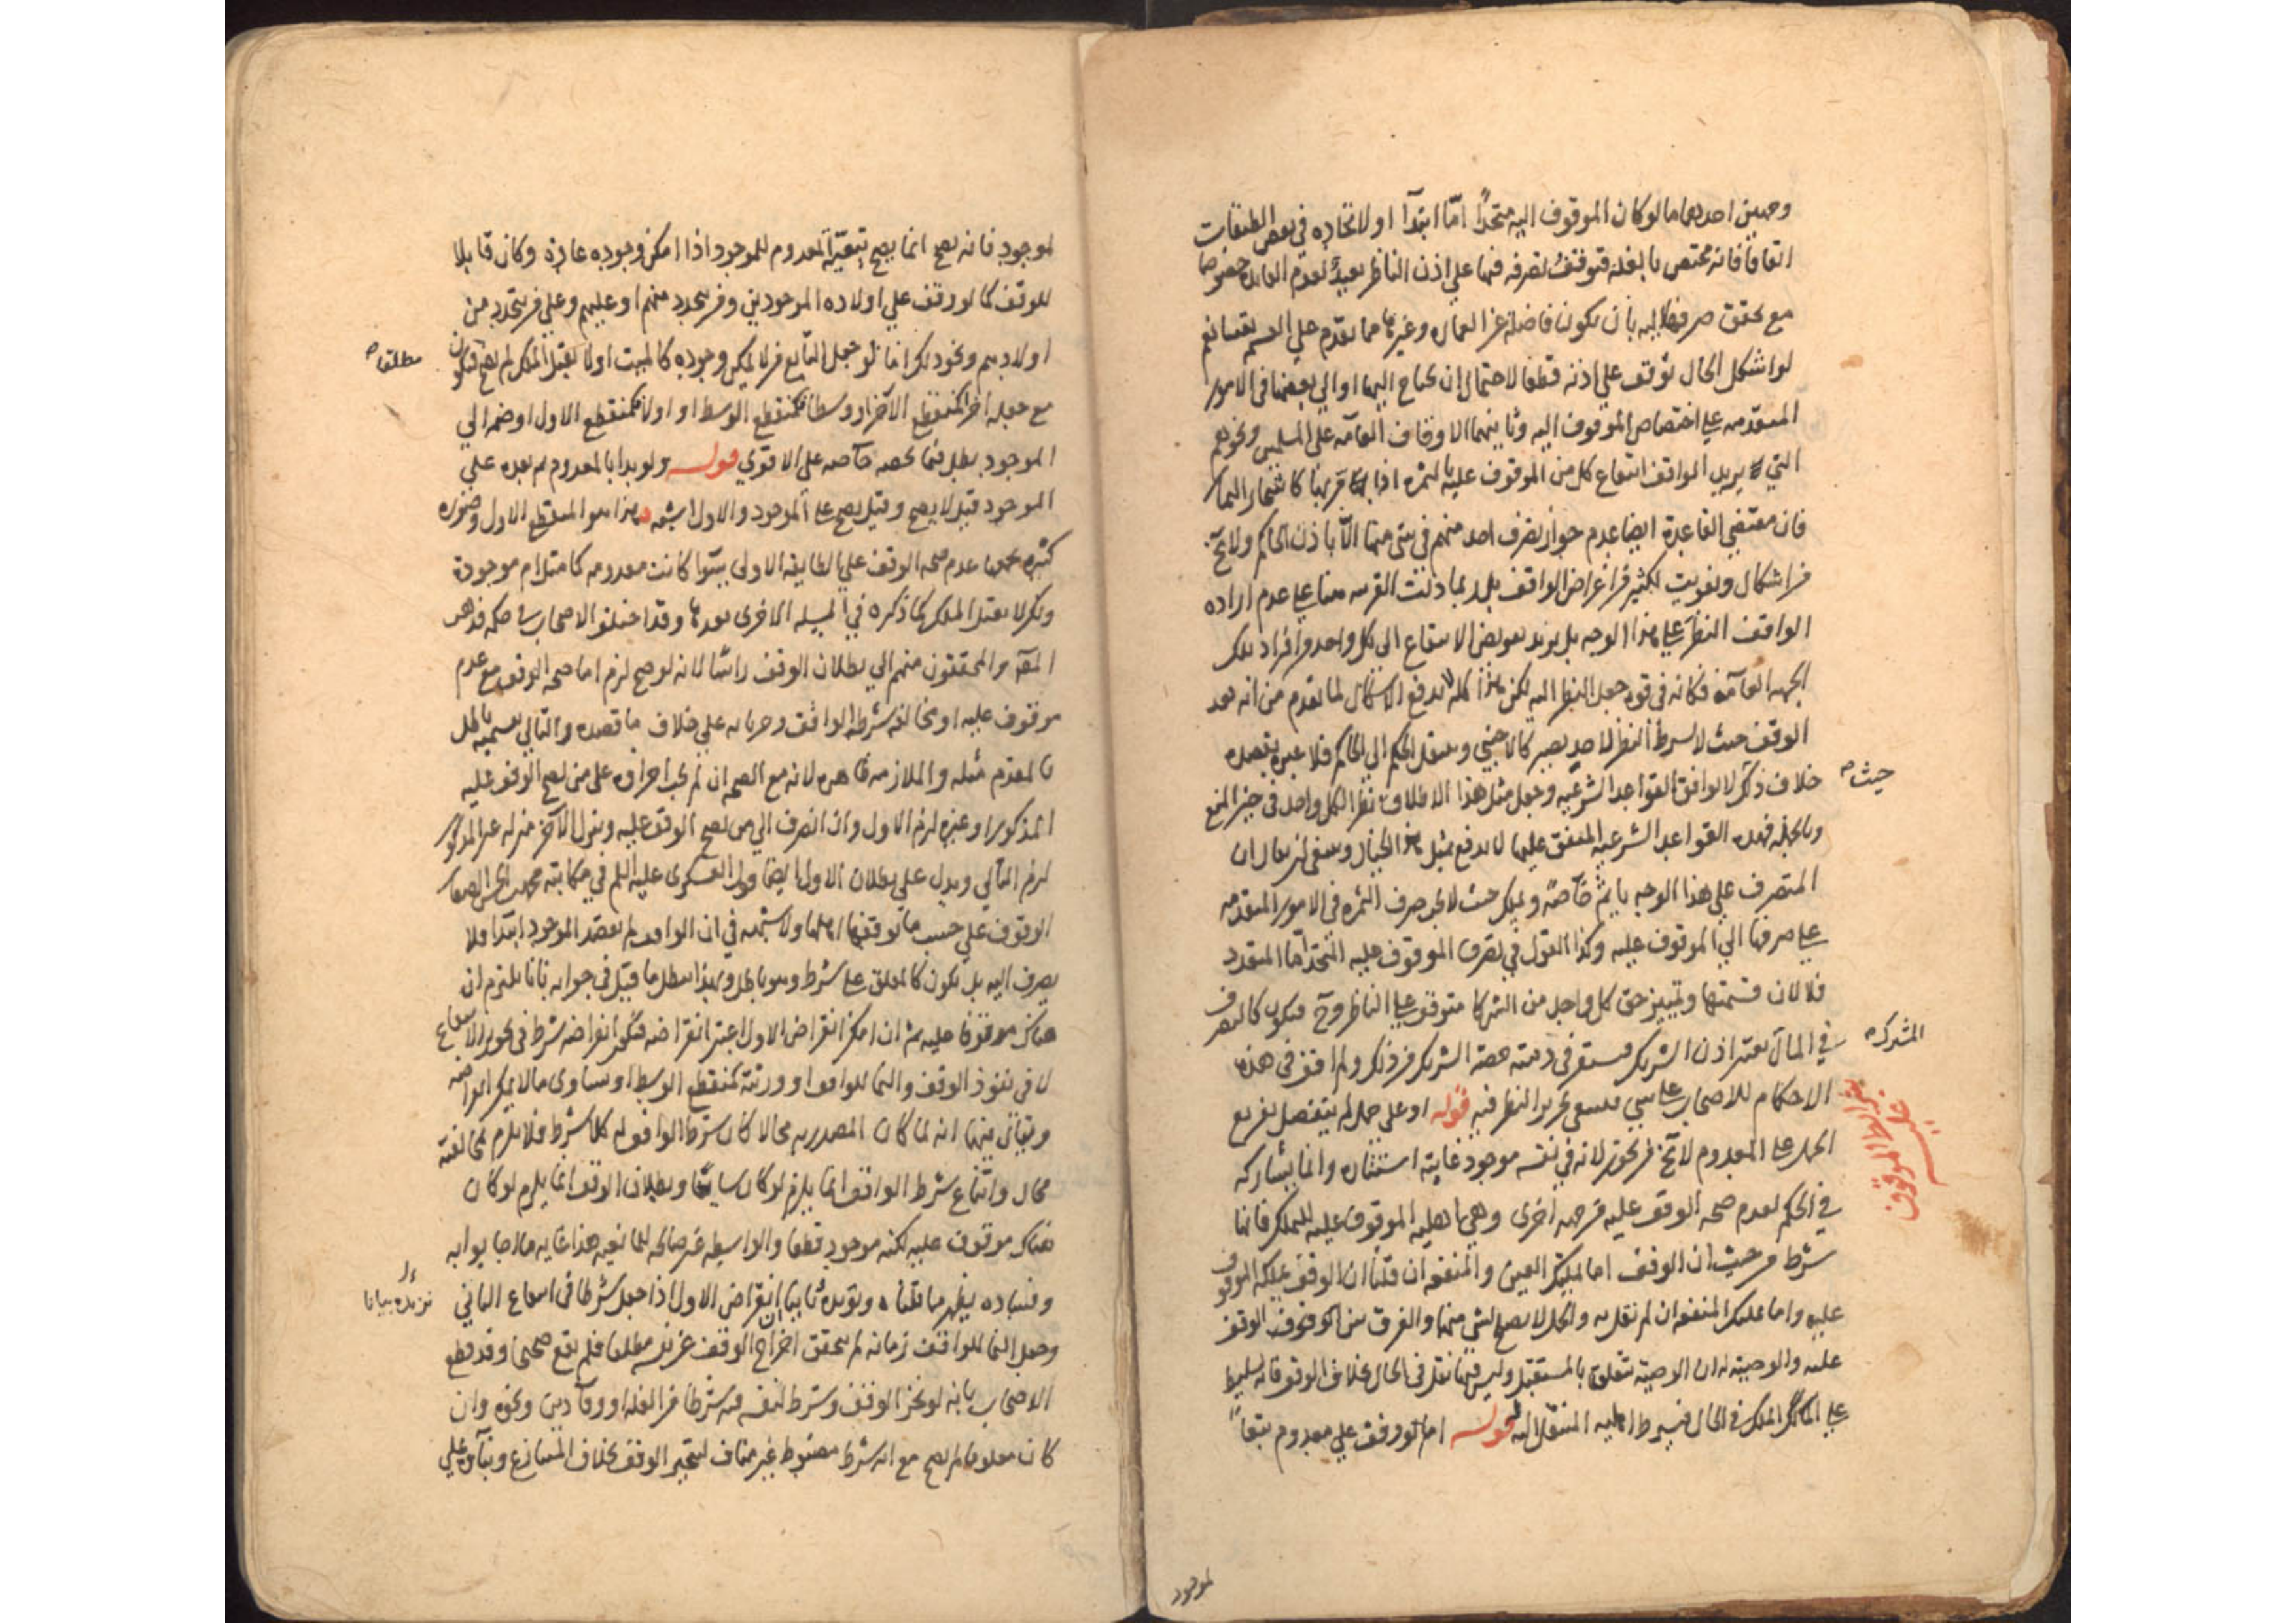 وجهين احدهما ما لو كان الموقوف اليه متحدًا امّا ابتدآ او لاتحاده في بعض الطبقات
اتفاقا فانه مختص بالغلة فتوقف تصرفه فيها علي اذن الناظر بعيد لعدم الفايدة خصوصا
مع تحقق صرفها اليه بان يكون فاضلة عن العماره وغيرها مما يقدم علي القسمه نعم
لو اشكل الحال توقف علي اذنه قطعا لاحتمال ان يحتاج اليها او الي بعضها في الامور
المتقدمه علي اختصاص الموقوف اليه وثانيهما الاوقاف العامه علي المسلمين ونحوهم
التي يريد الواقف انتفاع كل من الموقوف عليه بالثمره اذا مر بها كاشجار الثمار
فان مقتضي القاعدة ايضا عدم جواز تصرف احد منهم في شئ منها الّا باذن الحاكم ولا يخ
من اشكال وتفويت لكثير من اغراض الواقف بل ربما دلت القرينه هنا علي عدم اراده
الواقف النظر علي هذا الوجه بل يريد تفويض الانتفاع الي كل واحد من افراد تلك
الجهه العامه فكانه في قوة جعل النظر اليه لكن هذا كله لا يدفع الاشكال لما تقدم من انه بعد
الوقف حيث لا يشرط النظر لاحد يصير كالاجنبي وينتقل الحكم الي الحاكم فلا عبرة بقصده
حيث
خلاف ذلك لا يوافق القواعد الشرعيه وجعل مثل هذا الاطلاق نظرا لكل واحد في حيز المنع
وبالجملة فهذه القواعد الشرعيه المتفق عليها لا يدفع بمثل هذا الخيال وينبغي ان يقال ان
المتصرف علي هذا الوجه ياثم خاصة ويملك حيث لا يجب صرف الثمره في الامور المتقدمه
علي صرفها الي الموقوف عليه وكذا القول في تصرف الموقوف عليه المتحد اما المتعدد
فلا لان قسمتها وتمييز حق كل واحد من الشركا متوقف علي الناظر وح فيكون كالتصرف
المشترك
في المال يعتبر اذن الشريك فيستقر في ذمته حصة الشريك من ذلك ولم اقف في هذه
الاحكام للاصحاب علي شي فينبغي تحرير النظر فيه قوله او علي حمل لم ينفصل تفريع
شرايط الموقوف عليه
الحمل علي المعدوم لا يخ من تجوز لانه في نفسه موجود غايته استتاره وانما يشاركه
في الحكم لعدم صحه الوقف عليه من جهه اخرى وهي اهليه الموقوف عليه للتملك فانها
شرط من حيث ان الوقف اما تمليك العين والمنفعه ان قلنا ان الوقف يملكه الموقوف
عليه واما تمليك المنفعه ان لم نقل به والحمل لا يصلح لشي منها والفرق بين الوقف
عليه والوصيته له ان الوصية تتعلق بالمستقبل وليس فيها نقل في الحال بخلاف الوقف فانه تسليط
علي الملك في الحال فيشرط اهليه المنتقل اليه قوله اما لو وقف علي معدوم تبعاً
لموجود
لموجود فانه يصح انما يصح تبعيّة المعدوم للموجود اذا امكن وجوده عادة وكان قابلا
للوقف كما لو وقف علي اولاده الموجودين ومن يتجدد منهم او عليهم وعلي من يتجدد من
اولادهم ونحو ذلك اما لو جعل التابع من لا يمكن وجوده كالميت او لا يقبل الملك لم يصح فيكون
مطلقا
مع جعله اخرا كمنقطع الآخر او وسطا كمنقطع الوسط او اولا كمنقطع الاول او ضمه الي
الموجود بطل فيما يخصه خاصه علي الاقوي قوله ولو بدا بالمعدوم ثم بعده علي
الموجود قيل لا يصح وقيل يصح علي الموجود والاول اشبه هذا هو المنقطع الاول وصوره
كثيره يجمعها عدم صحه الوقف علي الطايفه الاولى سوآ كانت معدومه كما مثل ام موجودة
ولكن لا يقبل الملك كما ذكره في المسيله الاخرى بعدها وقد اختلف الاصحاب في حكمه فذهب
المص والمحققون منهم الي بطلان الوقف راسًا لانه لو صح لزم اما صحه الوقف مع عدم
موقوف عليه او مخالفه شرط الواقف وجريانه علي خلاف ما قصده والتالي بقسميه باطل
فالمقدم مثله والملازمه ظاهره لانه مع الصحه ان لم يجب اجراؤه علي من يصح الوقف عليه
المذكور او غيره لزم الاول وان انصرف الي من يصح الوقف عليه وينزل الآخر منزله غير المذكور
لزم التالي ويدل علي بطلان الاول ايضا قول العسكرى عليه السلم في مكاتبة محمد بن الحسن الصفار
الوقوف علي حسب ما يوقفها اهلها ولا شبهه في ان الواقف لم يقصد الموجود ابتدآ فلا
يصرف اليه بل يكون كالمعلق علي شرط وهو باطل وبهذا يبطل ما قيل في جوابه بانا نلتزم ان
هناك موقوفا عليه ثم ان امكن انقراض الاول اعتبر انقراضه فيكون انقراضه شرط في تجويز الانتفاع
لا في نفوذ الوقف والنما للواقف او ورثته كمنقطع الوسط او يساوى ما لا يمكن انقراضه
ويقال فيهما انه لما كان المصدر به محالا كان شرط الواقف له كلا شرط فلا يلزم مخالفته
محال واتباع شرط الواقف انما يلزم لو كان سايغا وبطلان الوقف انما يلزم لو كان
هناك موقوف عليه لكنه موجود قطعا والواسطه غير صالحه للمانعيه هذا غايه ما اجابوا به
وفساده يظهر مما قلناه ونؤيده ثانيا ان انقراض الاول اذا جعل شرطا في انتفاع الثاني
نزيده بيانا
وجعل النما للواقف زمانه لم يتحقق اخراج الوقف عن نفسه مطلقا فلم يقع صحيحا وقد قطع
الاصحاب بانه لو نجز الوقف وشرط لنفسه فيه شرطا من الغله او وفآ دين ونحوه وان
كان معلوما لم يصح مع انه شرط مضبوط غير مناف لتنجيز الوقف بخلاف المتنازع وبنآؤه علي